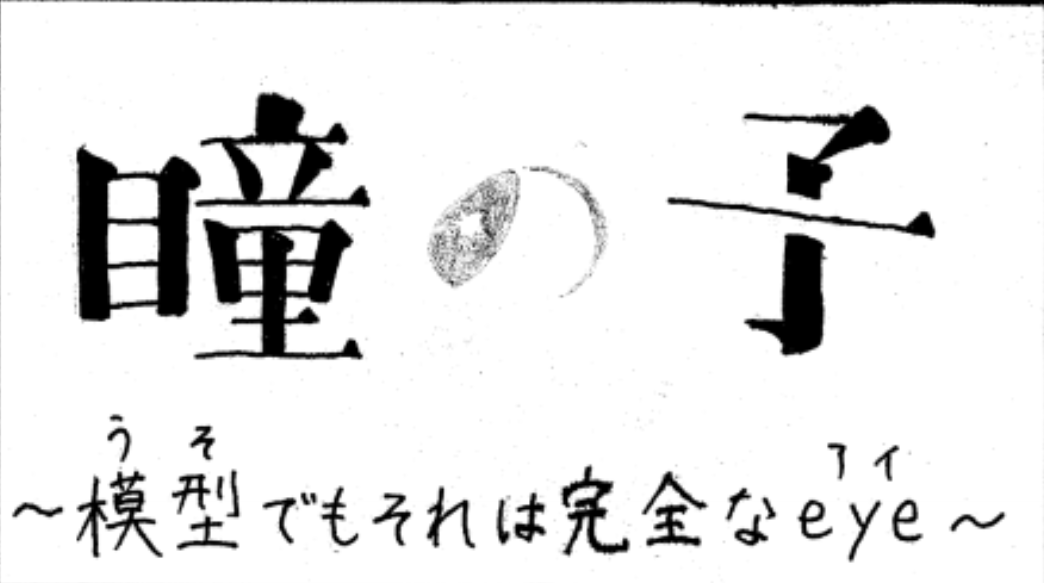 瞳の子
うそ アイ
～模型でもそれは完全なeye～